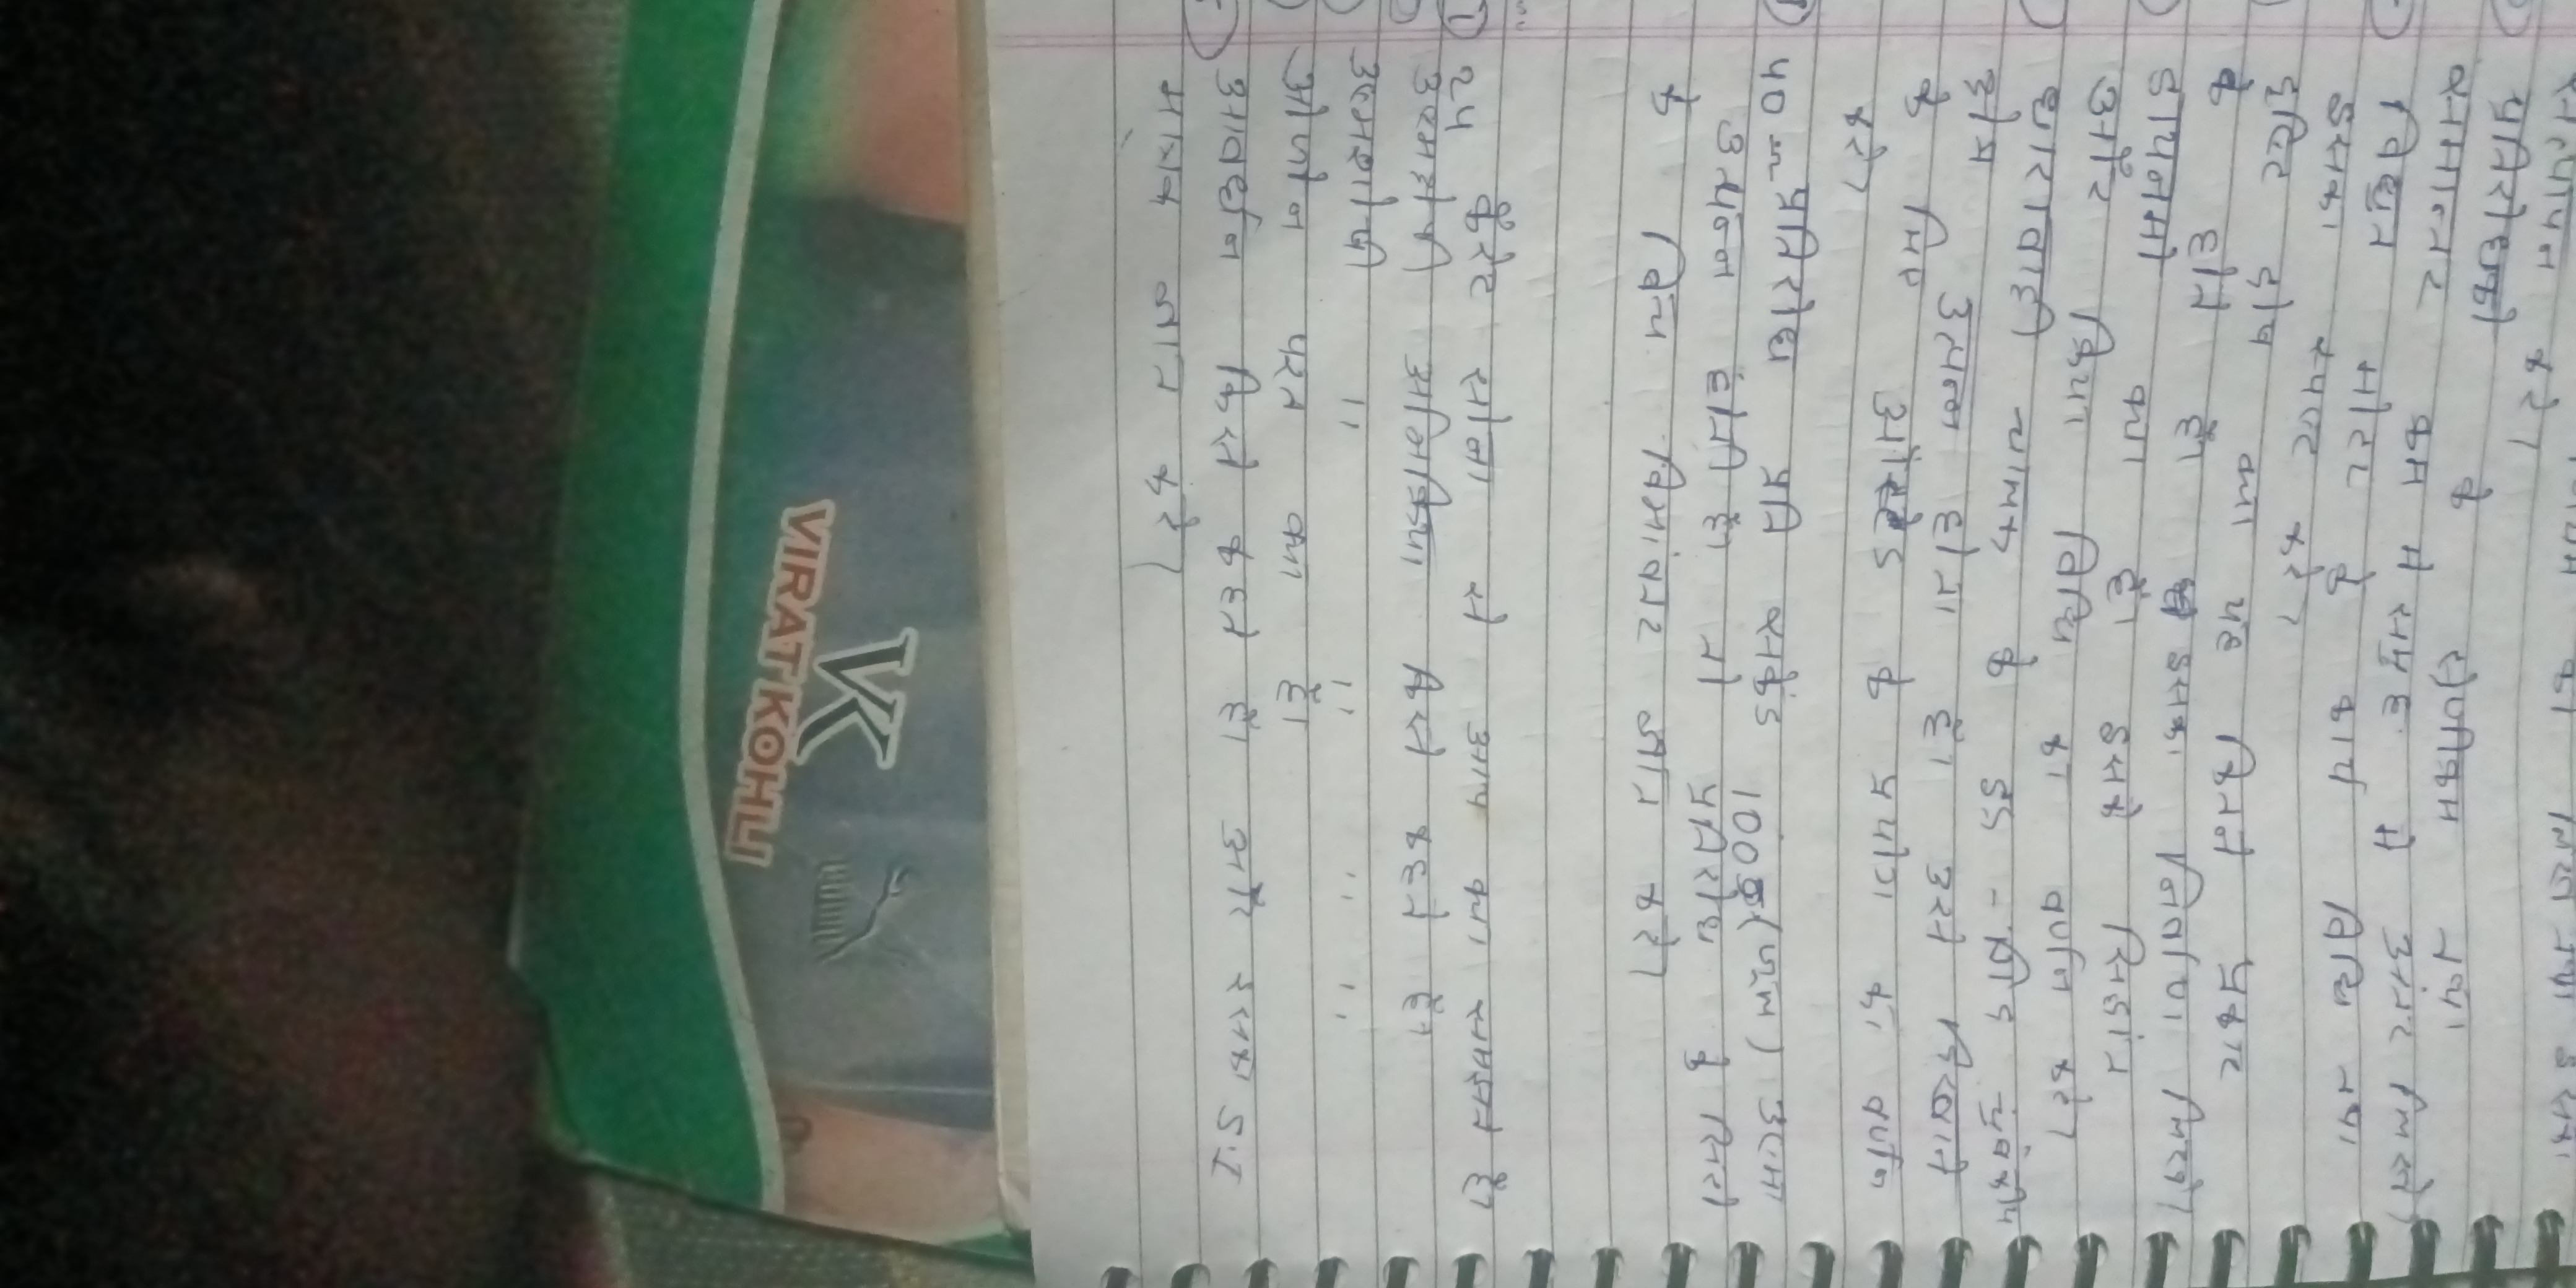 स्थापन करे।
प्रतिरोधको के श्रेणीक्रम तथा
समानान्तर क्रम मे समूहन मे अंतर लिखे।
विधुत मोटर के कार्य विधि तथा
इसका स्पष्ट करे।
दृष्टि दोष क्या यह कितने प्रकार
के होते है। इसका निवारण लिखे।
डायनेमो क्या है। इसके सिद्धांत
और क्रिया विधि का वर्णन करे।
धारावाही चालक के इर्द-गिर्द चुंबकीय
क्षेत्र उत्पन्न होता है। इसे दिखाने
के लिए ओस्टेड के प्रयोग का वर्णन
करे।
40 प्रतिरोध प्रति सेकेंड 100 (जूल) उष्मा
उत्पन्न होती है। तो प्रतिरोध के सिरो
के बिच विभवांतर ज्ञात करे।
24 कैरेट सोना से आप क्या समझते है।
उष्माक्षेपी अभिक्रिया किसे कहते है।
उष्माशोषी " " " "
ओजोन परत क्या है।
आवर्धन किसे कहते है। और इसका S.I
मात्रक ज्ञात करे।
VK
VIRAT KOHLI